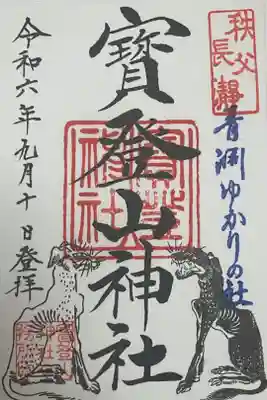 秩父
長瀞
青淵ゆかりの社
寳登山神社
令和六年九月十日登拝